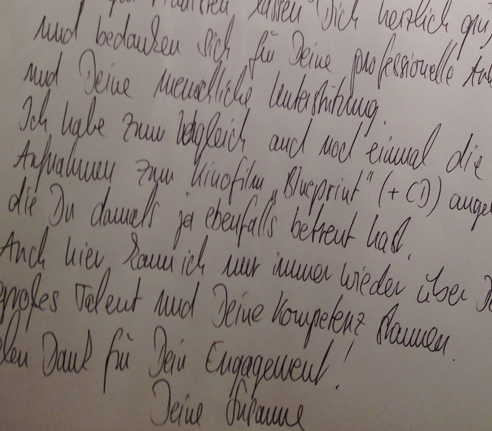 lassen Dich herzlich
und bedanken sich für Deine professionelle
und Deine menschliche Unterstützung.
Ich habe zum Vergleich auch noch einmal die
Aufnahmen zum Kinofilm „Blueprint" (+ CD)
die Du damals ja ebenfalls betreut hast.
Auch hier kann ich nur immer wieder über
großes Talent und Deine Kompetenz staunen.
Dank für Dein Engagement!
Deine Susanne